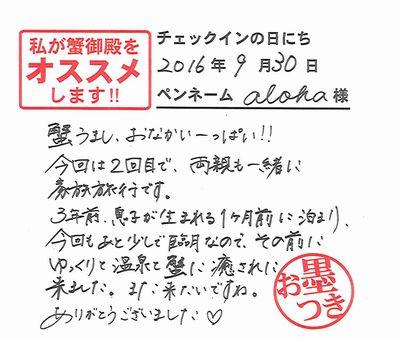 私が蟹御殿を
オススメ
します!!
チェックインの日にち
2016年9月30日
ペンネーム aloha 様
蟹うまし、おなかいーっぱい!!
今回は2回目で、両親も一緒に
家族旅行です。
3年前、息子が生まれる1ヶ月前に泊まり、
今回もあと少しで臨月なので、その前に
ゆっくりと温泉と蟹に癒されに
来ました。また来たいですね。
ありがとうございました♡
お墨つき